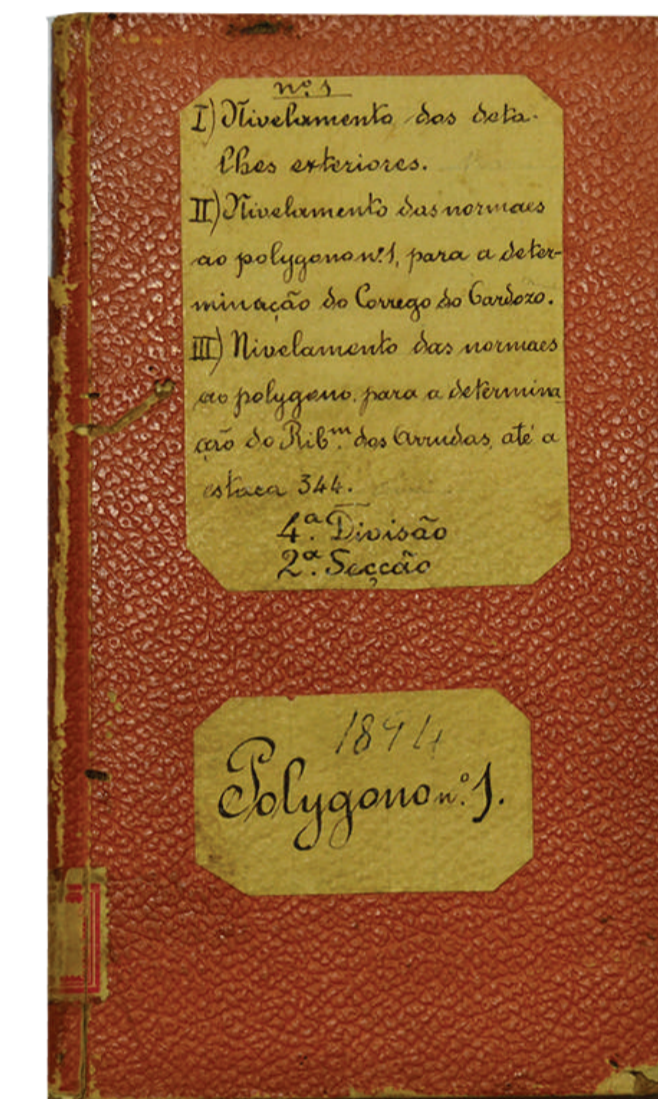 nº 1
I) Nivelamento dos deta-
lhes exteriores.
II) Nivelamento das normaes
ao polygono nº 1, para a deter-
minação do Corrego do Cardozo.
III) Nivelamento das normaes
ao polygono, para a determina
ção do Ribm. dos Arrudas, até a
estaca 344.
4.ª Divisão
2.ª Secção
1894
Polygono n.º 1.